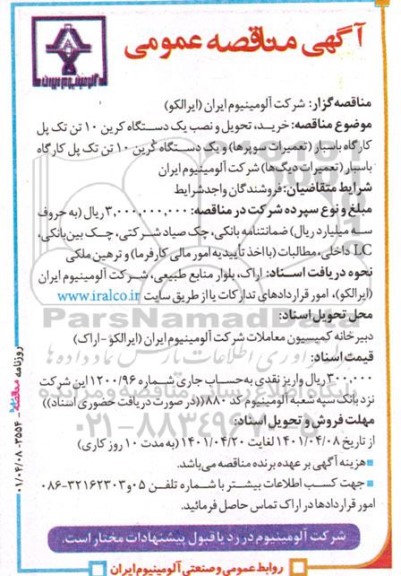 آگهی مناقصه عمومی
آلومینیوم ایران
مناقصه گزار: شرکت آلومینیوم ایران (ایرالکو)
موضوع مناقصه: خرید، تحویل و نصب یک دستگاه کرین ۱۰ تن تک پل
کارگاه باسبار (تعمیرات سوپرها) و یک دستگاه کرین ۱۰ تن تک پل کارگاه
باسبار (تعمیرات دیگ‌ها) شرکت آلومینیوم ایران
شرایط متقاضیان: فروشندگان واجد شرایط
مبلغ و نوع سپرده شرکت در مناقصه: ۳,۰۰۰,۰۰۰,۰۰۰ ریال (به حروف
سه میلیارد ریال) ضمانتنامه بانکی، چک صیاد شرکتی، چک بین بانکی،
LC داخلی، مطالبات (با اخذ تأییدیه امور مالی کارفرما) و ترهین ملکی
نحوه دریافت اسناد: اراک، بلوار منابع طبیعی، شرکت آلومینیوم ایران
(ایرالکو)، امور قراردادهای تدارکات یا از طریق سایت www.iralco.ir
محل تحویل اسناد:
دبیرخانه کمیسیون معاملات شرکت آلومینیوم ایران (ایرالکو - اراک)
قیمت اسناد:
۳۰۰,۰۰۰ ریال واریز نقدی به حساب جاری شماره ۱۲۰۰/۹۶ این شرکت
نزد بانک سپه شعبه آلومینیوم کد ۸۸۰ ((در صورت دریافت حضوری اسناد))
مهلت فروش و تحویل اسناد:
از تاریخ ۱۴۰۱/۰۴/۰۸ لغایت ۱۴۰۱/۰۴/۲۰ (به مدت ۱۰ روز کاری)
■ هزینه آگهی بر عهده برنده مناقصه می‌باشد.
■ جهت کسب اطلاعات بیشتر با شماره تلفن ۰۵ و ۳۲۱۶۲۳۰۳-۰۸۶
امور قراردادها در اراک تماس حاصل فرمائید.
شرکت آلومینیوم در رد یا قبول پیشنهادات مختار است.
روابط عمومی و صنعتی آلومینیوم ایران
روزنامه مناقصه - ۳۵۵۴ - ۰۱/۰۴/۰۸
ParsNamadData
۰۲۱-۸۸۳۴۹۶۷۰-۵